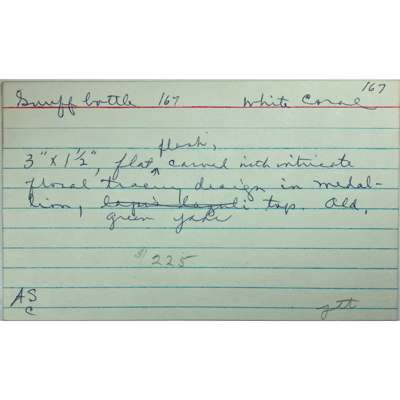 167
Snuff bottle 167 White Coral
flask,
3" x 1½", flat carved with intricate
floral tracery design in medal-
lion, lapis lazuli top. Old,
green jade
$225
AS
C